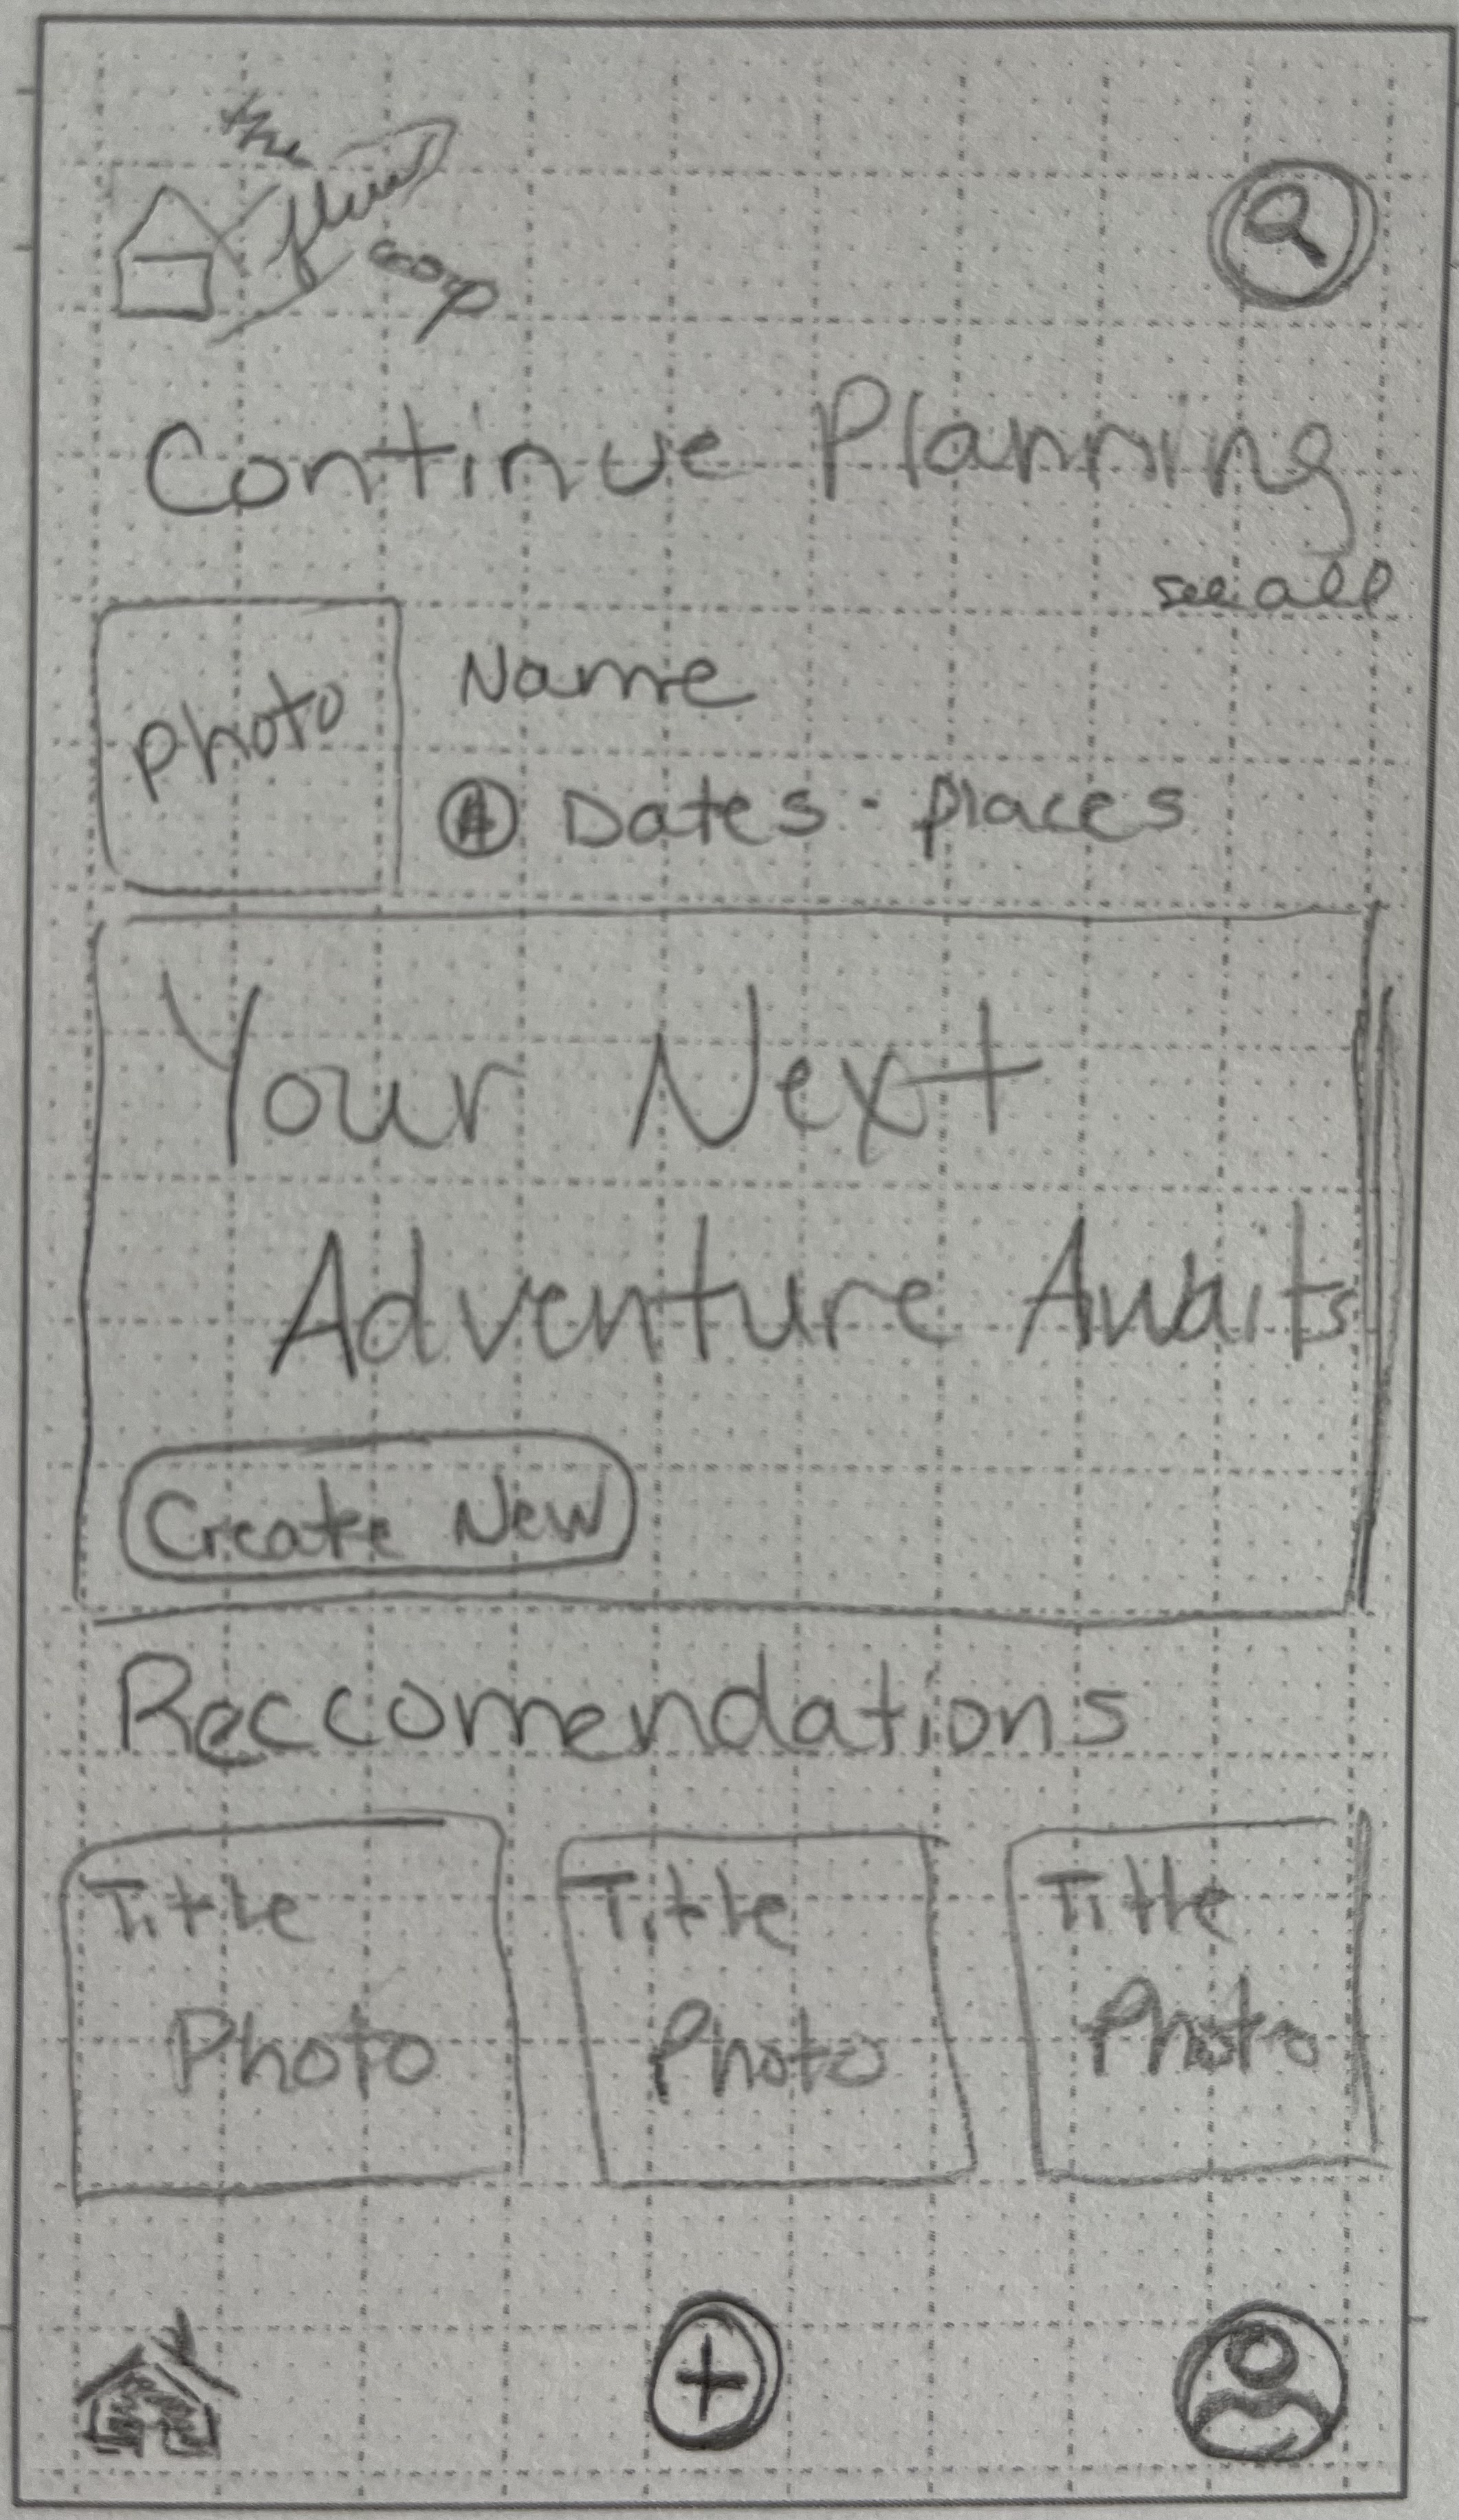 the
flew
coop
Continue Planning
see all
Photo
Name
Dates · Places
Your Next
Adventure Awaits
Create New
Reccomendations
Title
Photo
Title
Photo
Title
Photo